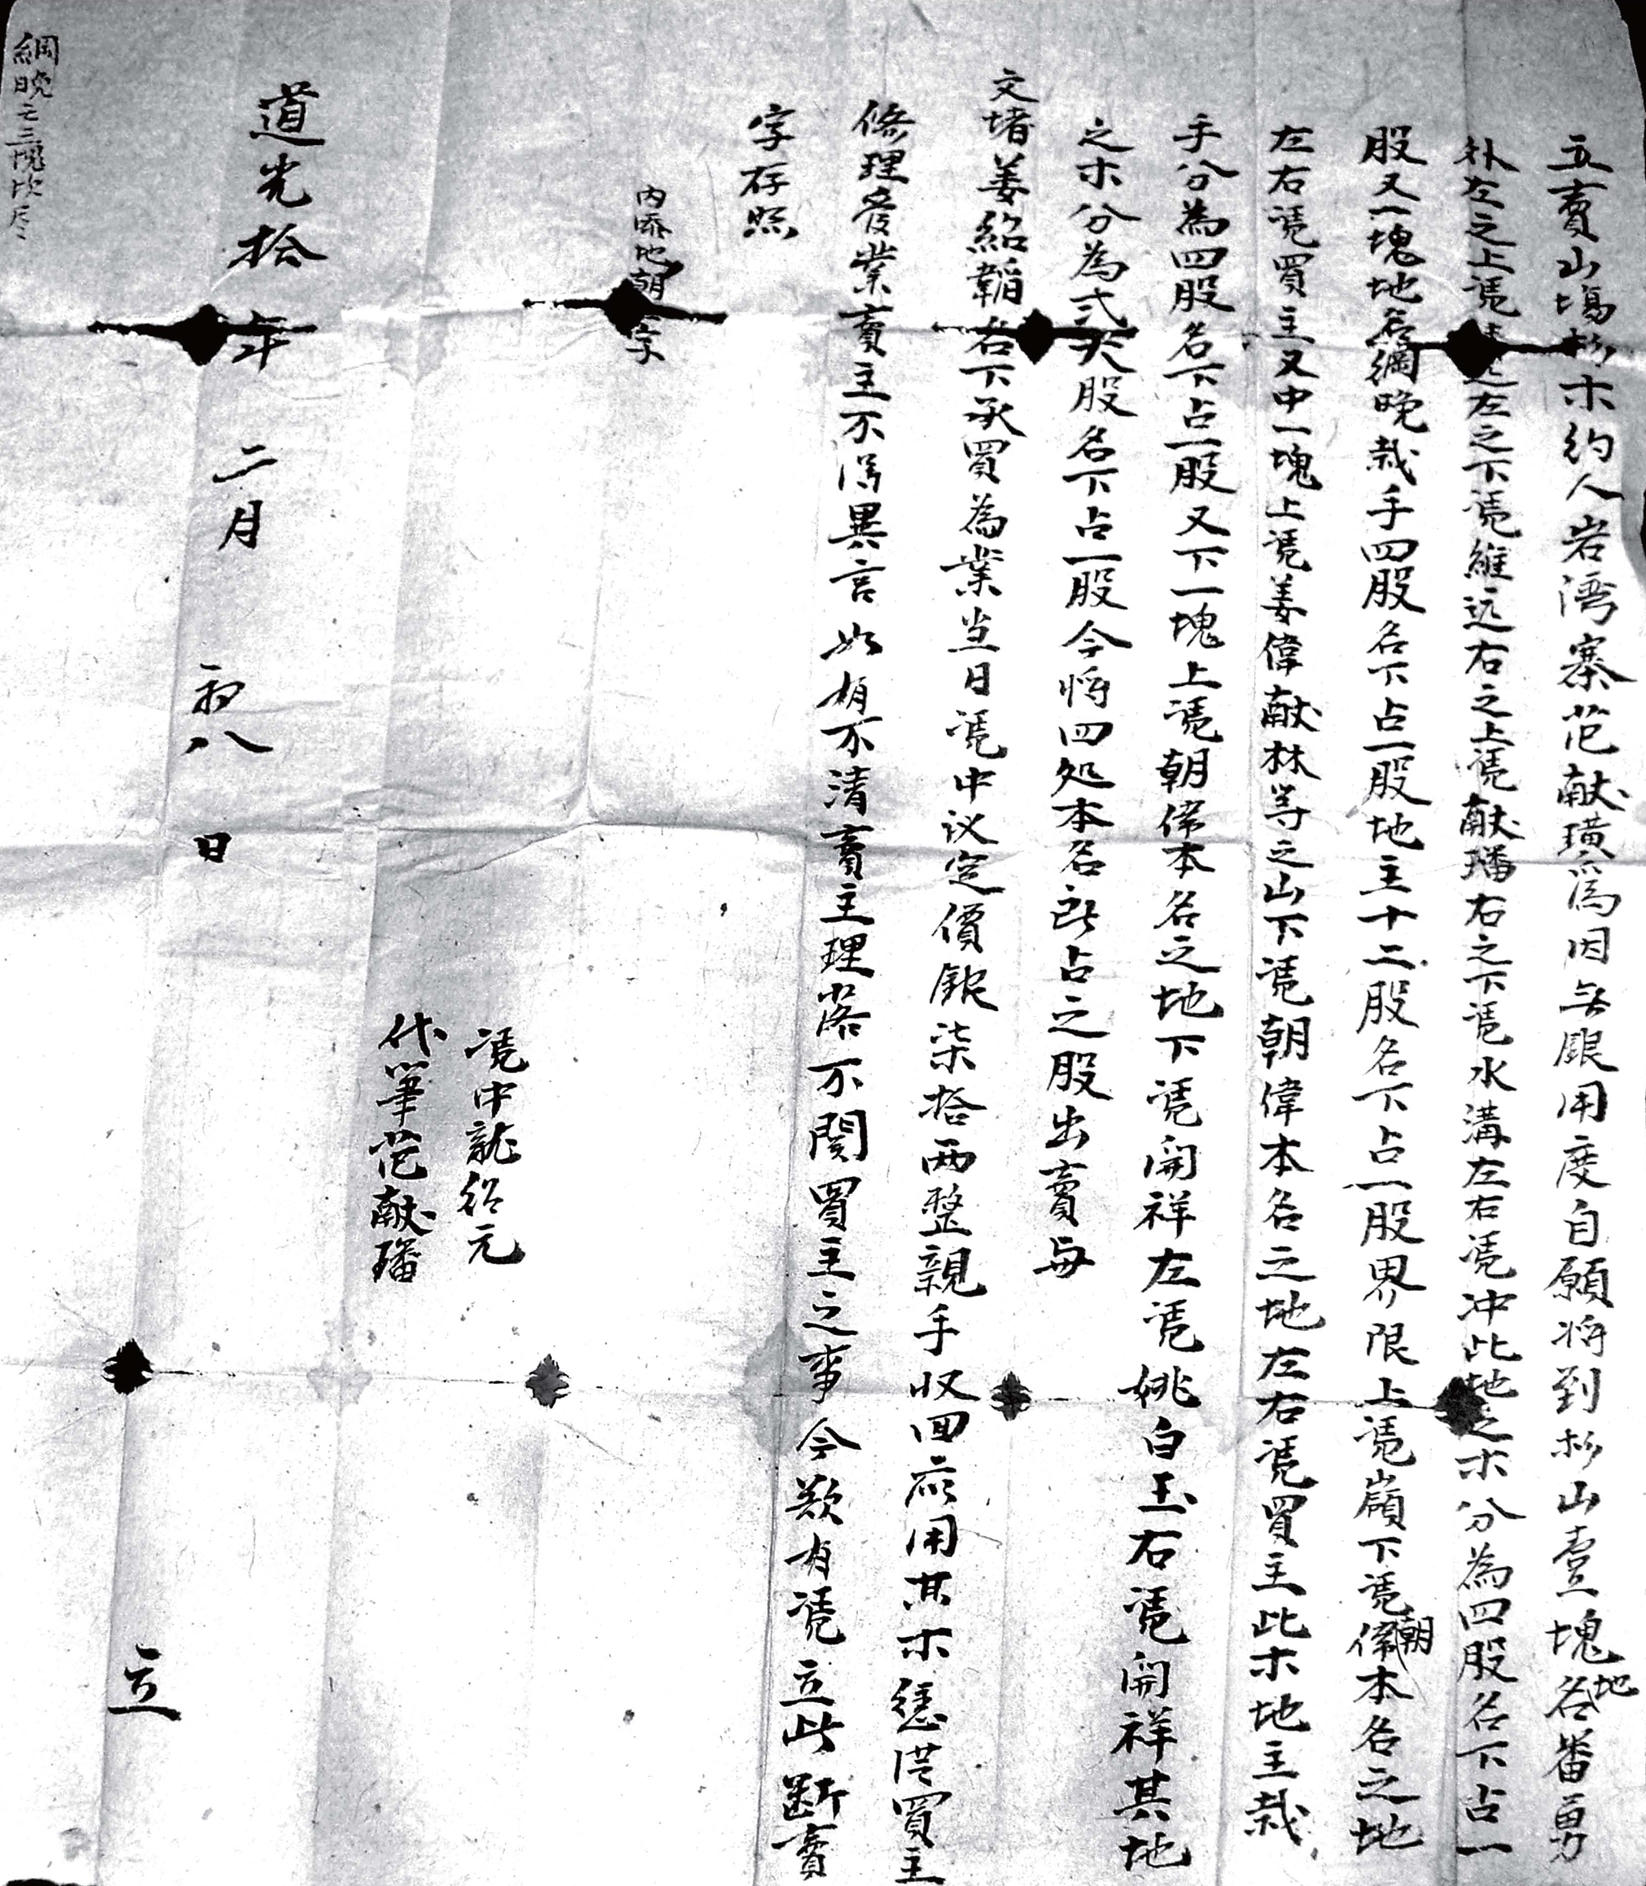 立賣山塲杉木約人岩湾寨范献璜爲因無銀用度自願将到杉山壹一塊地名番勇
朴左之上凴左之下凴維远右之上凴献璠右之下凴水溝左右凴冲此地之木分為四股名下占一
股又一塊地名綱晚栽手四股名下占一股地主十二股名下占一股界限上凴嶺下凴朝偉本名之地
左右凴買主又中一塊上凴姜偉献林等之山下凴朝偉本名之地左右凴買主此木地主栽
手分為四股名下占一股又下一塊上凴朝偉本名之地下凴開祥左凴姚白玉右凴開祥其地
之木分為弍大股名下占一股今将四处本名所占之股出賣与
文堵姜紹韜名下承買為業当日凴中议定價銀柒拾两整親手收回应用其木憑買主
修理管業賣主不得異言如有不清賣主理落不関買主之事今欲有凴立此断賣
字存照
内添地朝字
凴中龍紹元
代筆范献璠
道光拾年二月初八日立
綱晚之三塊